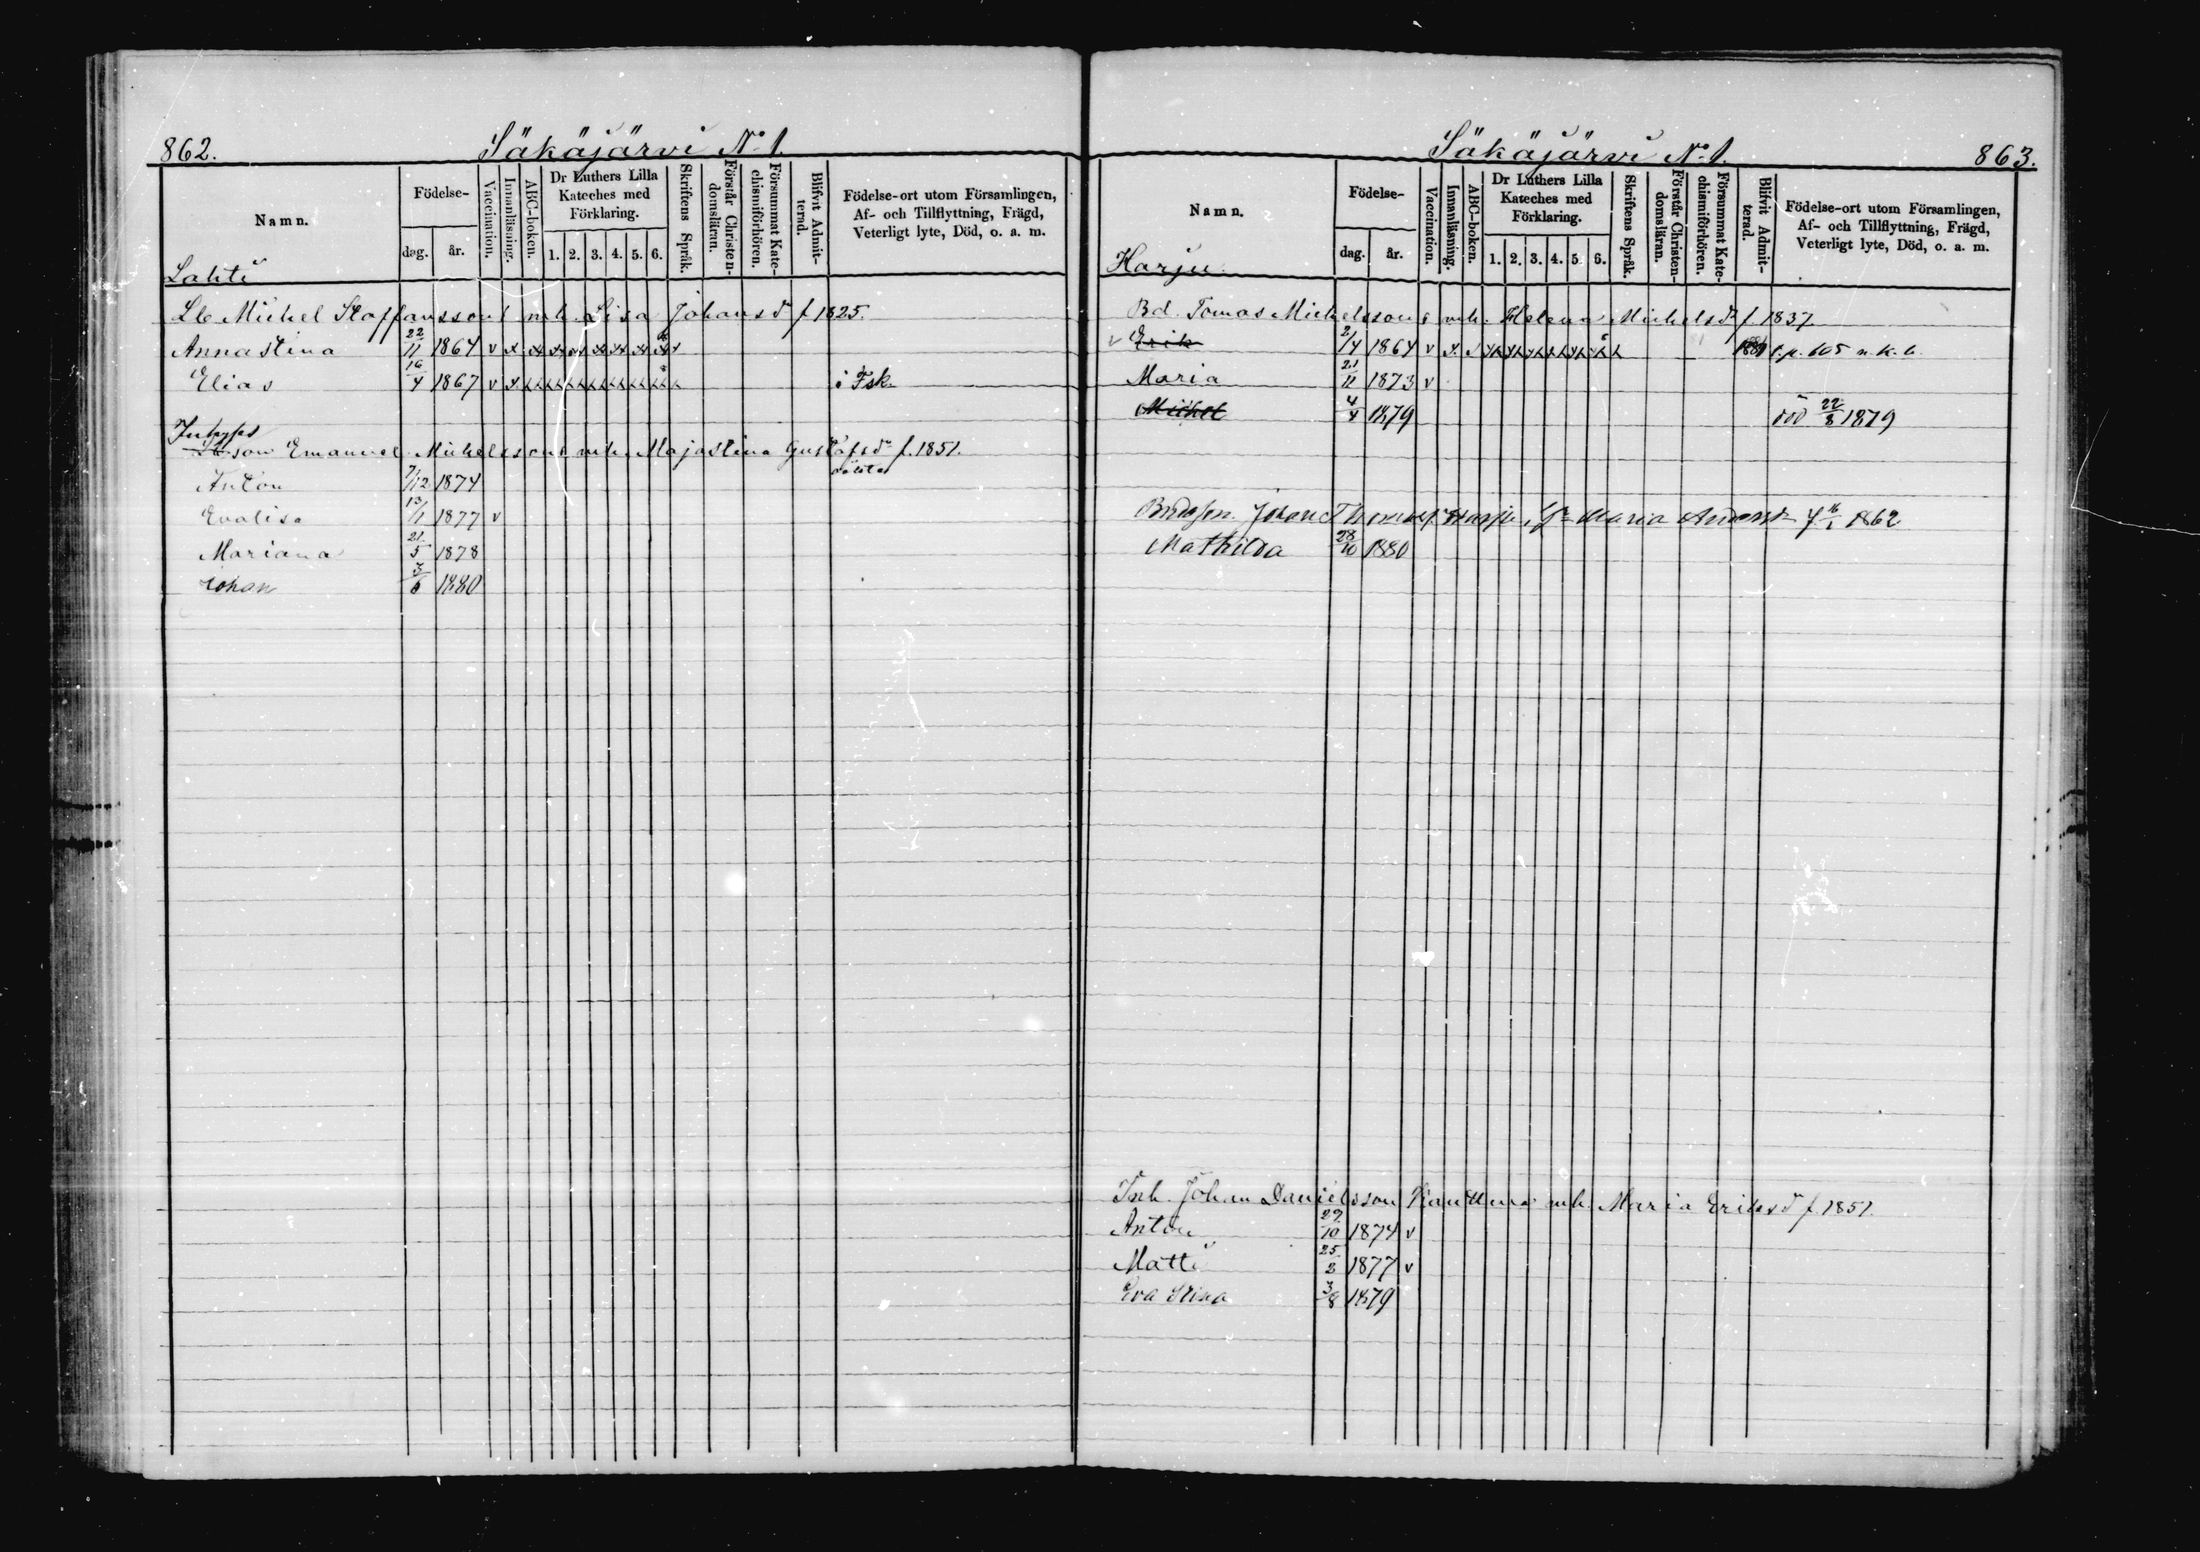 862. Säkäjärvi No 1.
Namn. Födelse- dag. år. Vaccination. Innanläsning. ABC-boken. Dr Luthers Lilla Kateches med Förklaring. 1. 2. 3. 4. 5. 6. Skriftens Språk. Förstår Christendomsläran. Försummat Katechismiförhören. Blifvit Admitterad. Födelse-ort utom Församlingen, Af- och Tillflyttning, Frägd, Veterligt lyte, Död, o. a. m.
Lahti
Michel Staffanssons mh. Lisa Johansdr f 1825.
Annastina 22/11 1864 v x
Elias 16/4 1867 v x i Fsk
son Emanuel Michelssons mh. Majastina Gustafsdr f. 1851.
Anton 7/12 1874
Evalisa 13/1 1877 v
Mariana 21/5 1878
Johan 3/6 1880
Säkäjärvi No 1. 863.
Namn. Födelse- dag. år. Vaccination. Innanläsning. ABC-boken. Dr Luthers Lilla Kateches med Förklaring. 1. 2. 3. 4. 5. 6. Skriftens Språk. Förstår Christendomsläran. Försummat Katechismiförhören. Blifvit Admitterad. Födelse-ort utom Församlingen, Af- och Tillflyttning, Frägd, Veterligt lyte, Död, o. a. m.
Harju
Bd. Tomas Michelssons mh. Helena Michelsdr f. 1837
v Erik 2/4 1864 v x p. 605 n. k. b.
Maria 21/11 1873 v
Michel 4/4 1879 död 22/8 1879
Johan Harju Maria 1862
Mathilda 28/10 1880
Inh. Johan Danielsson mh. Maria Eriksdr f 1851.
Anton 29/10 1874 v
Matti 25/2 1877 v
Eva Stina 3/8 1879